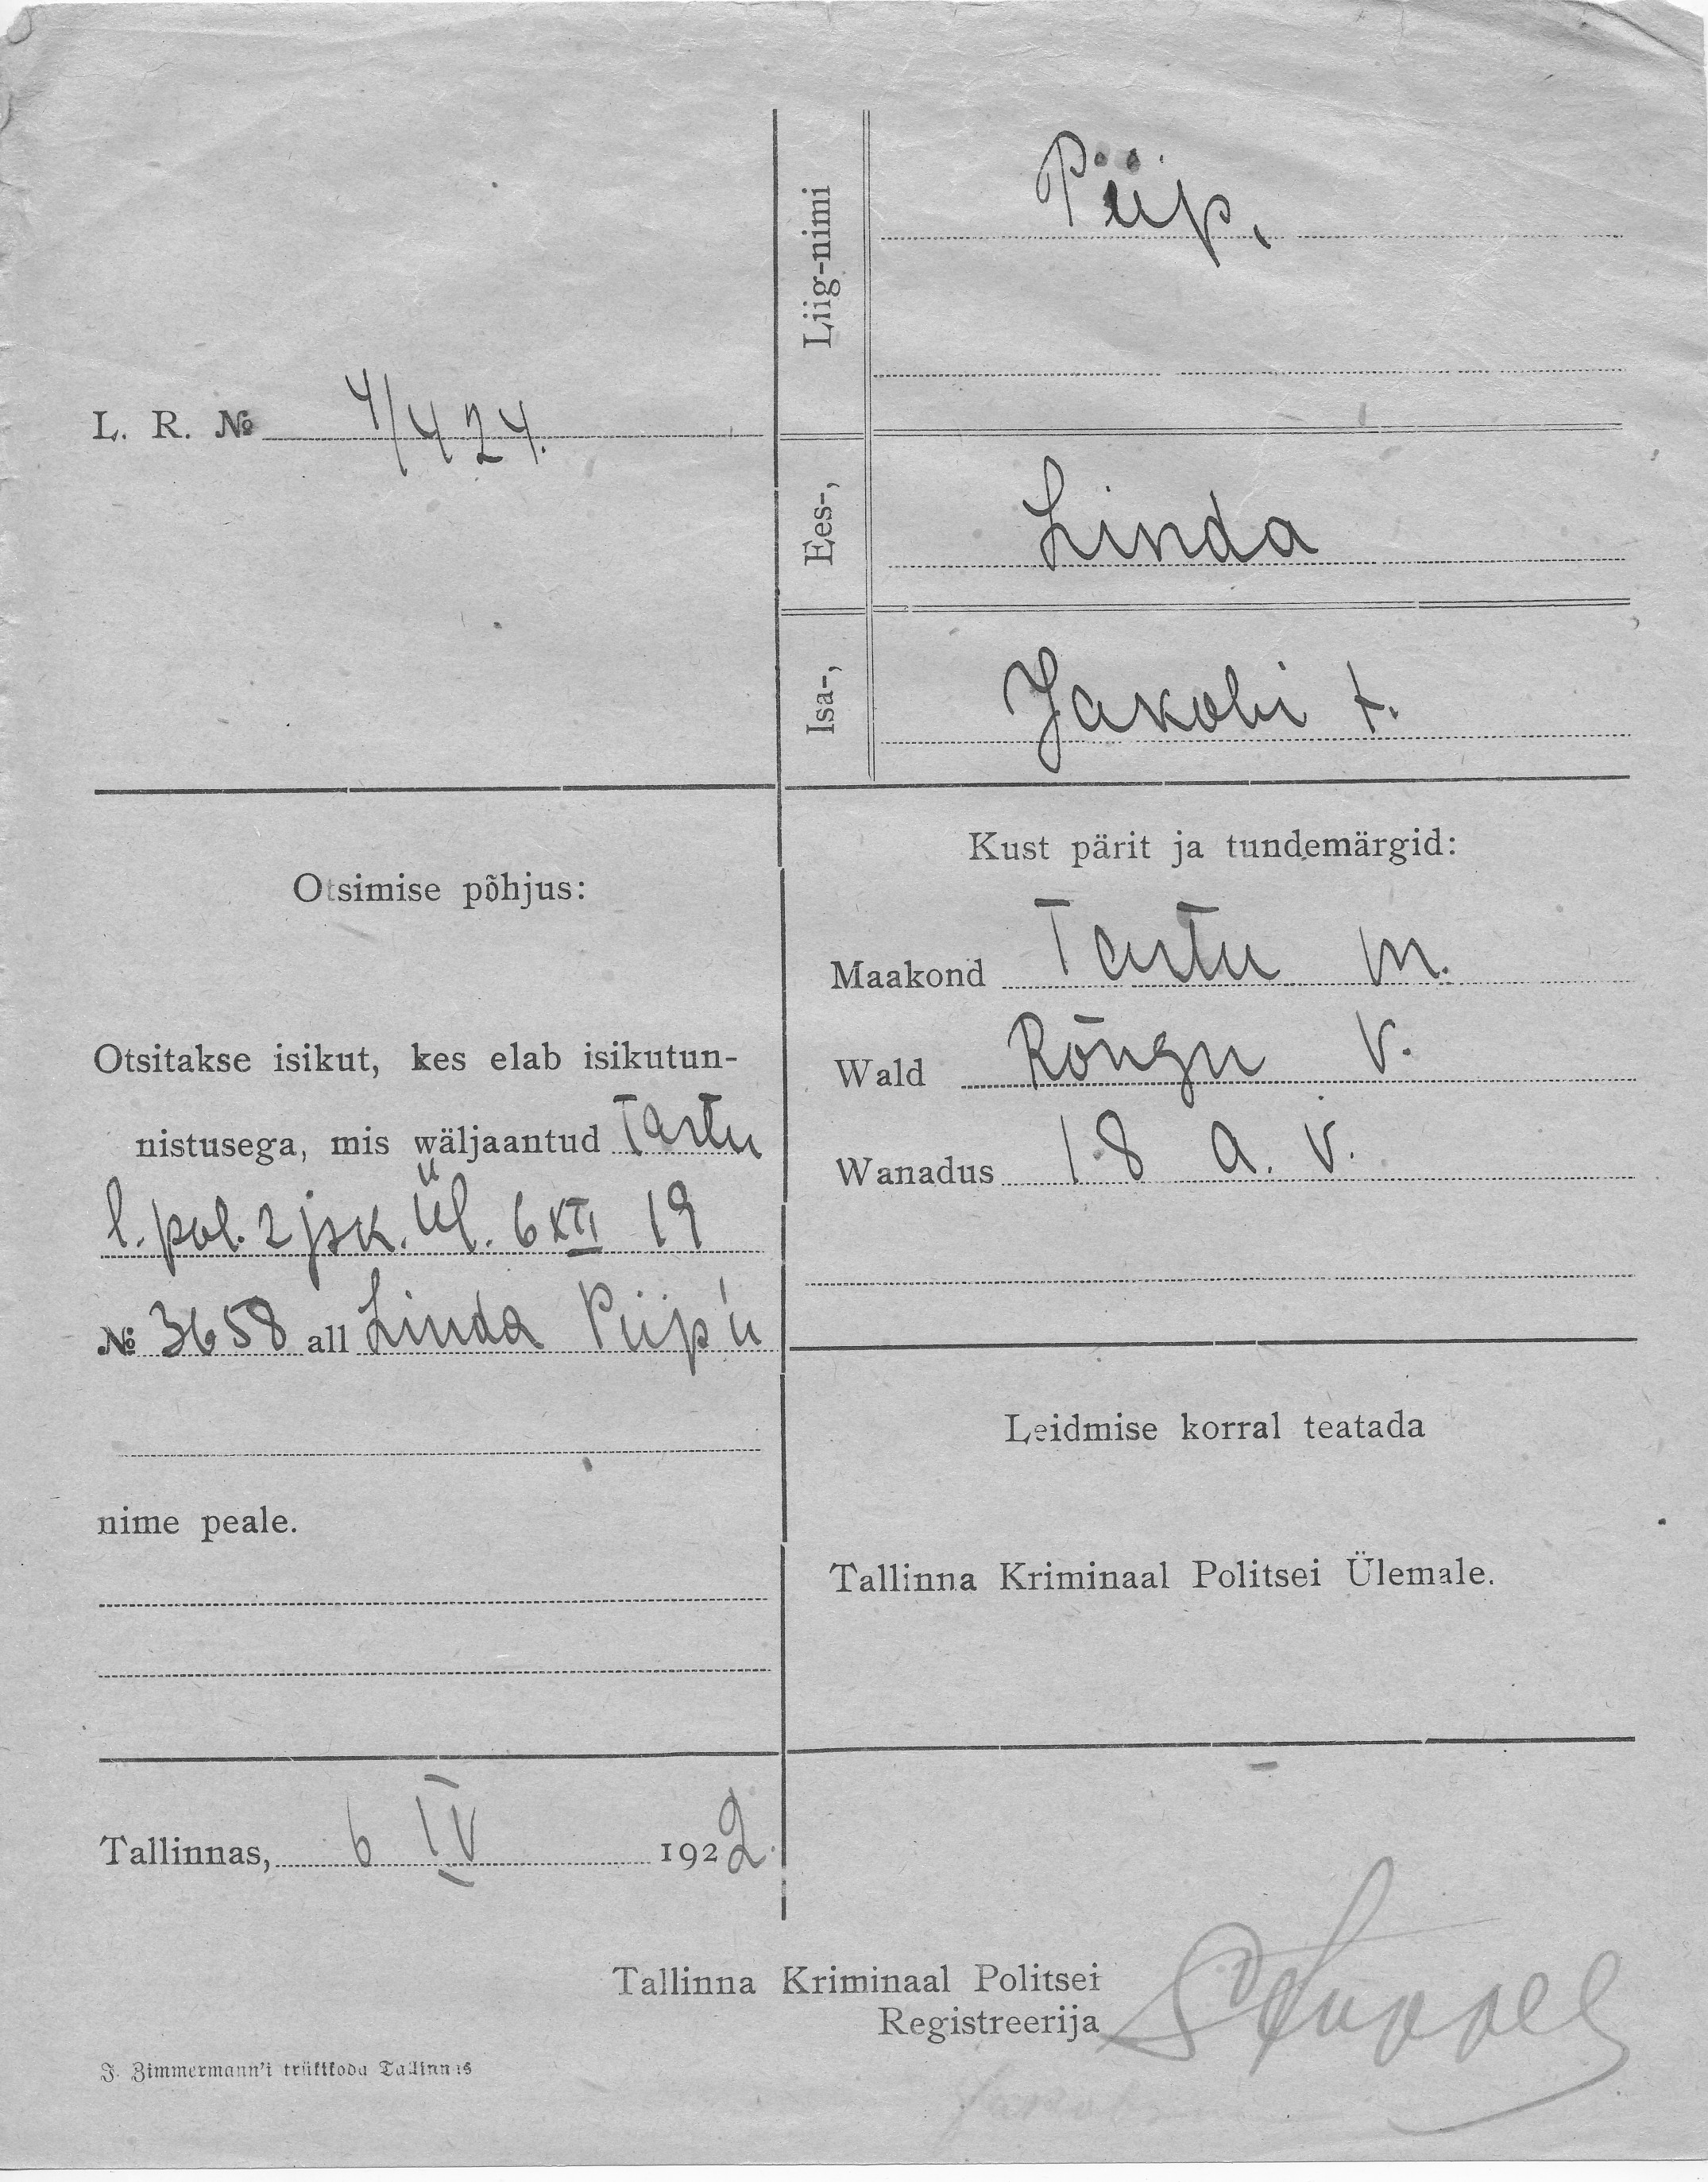 L. R. № 4/424.
Liig-nimi Piip,
Ees-, Linda
Isa-, Jakobi t.
Otsimise põhjus:
Otsitakse isikut, kes elab isikutun-
nistusega, mis wäljaantud Tartu
l. pol. 2 jsk. ül. 6 XII 19
№ 3658 all Linda Piip'u
nime peale.
Kust pärit ja tundemärgid:
Maakond Tartu m.
Wald Rõngu v.
Wanadus 18 a. v.
Leidmise korral teatada
Tallinna Kriminaal Politsei Ülemale.
Tallinnas, 6 IV 1922.
Tallinna Kriminaal Politsei
Registreerija
J. Zimmermann'i trükikoda Tallinnas